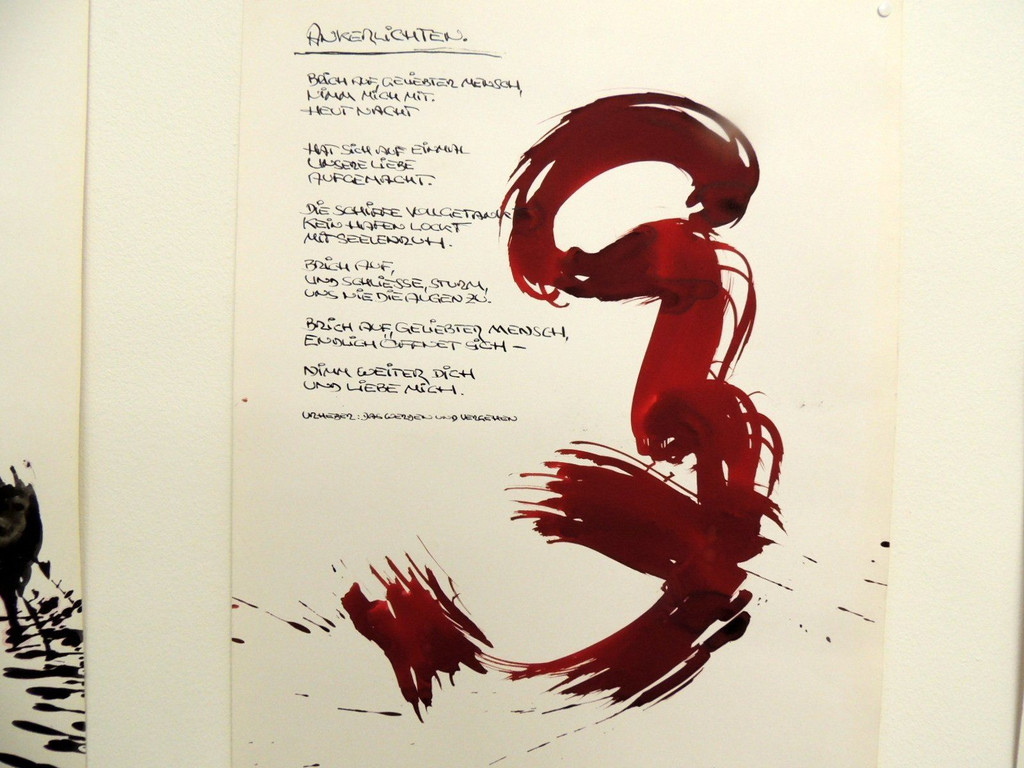 ANKERLICHTEN.
BRICH AUF, GELIEBTER MENSCH,
NIMM MICH MIT.
HEUT NACHT
HAT SICH AUF EINMAL
UNSERE LIEBE
AUFGEMACHT.
DIE SCHIFFE VOLLGETANKT
KEIN HAFEN LOCKT
MIT SEELENRUH.
BRICH AUF,
UND SCHLIESSE, STURM,
UNS NIE DIE AUGEN ZU.
BRICH AUF, GELIEBTER MENSCH,
ENDLICH ÖFFNET SICH –
NIMM WEITER DICH
UND LIEBE MICH.
URHEBER: DAS WERDEN UND VERGEHEN